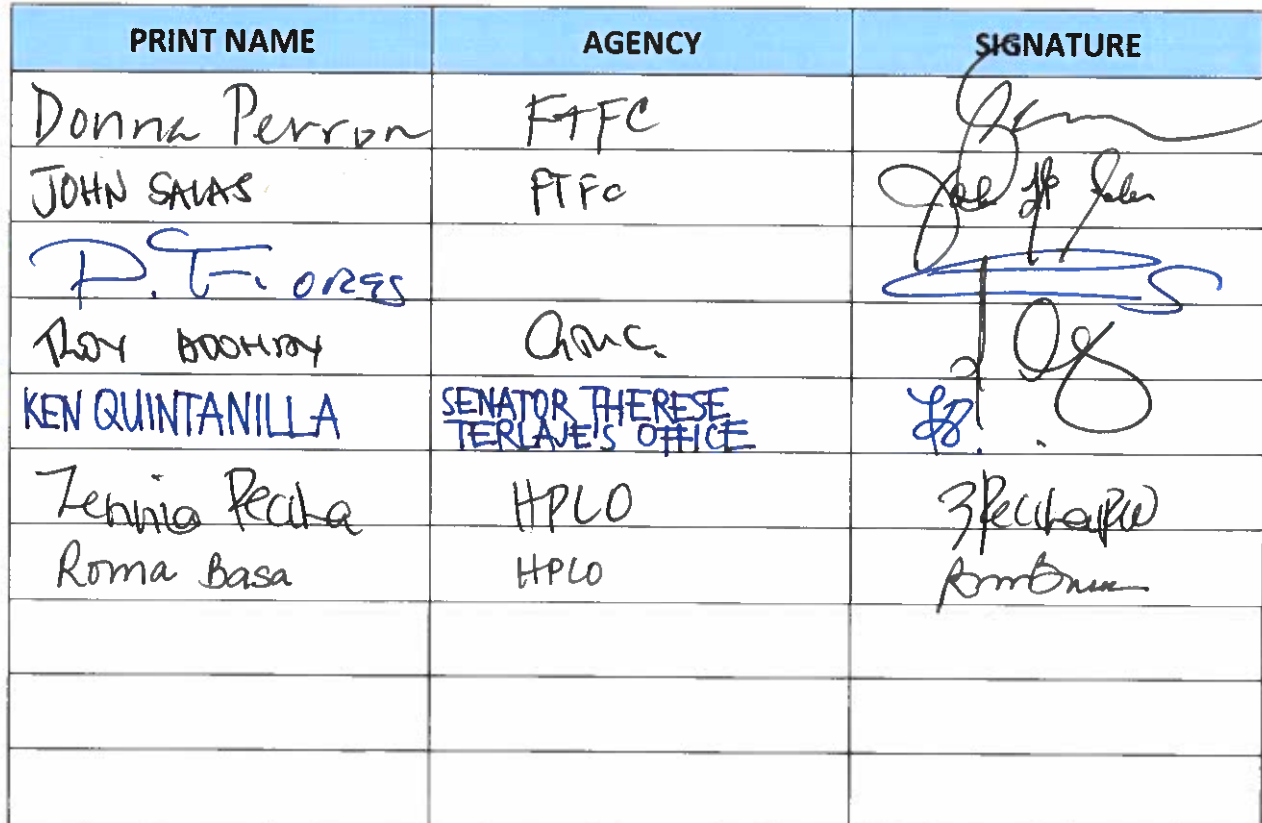 PRINT NAME AGENCY SIGNATURE
Donna Perron FTFC
JOHN SALAS PTFC
P. FLORES
TROY GMC.
KEN QUINTANILLA SENATOR THERESE
TERLAJE'S OFFICE
Zennia Pecina HPLO
Roma Basa HPLO